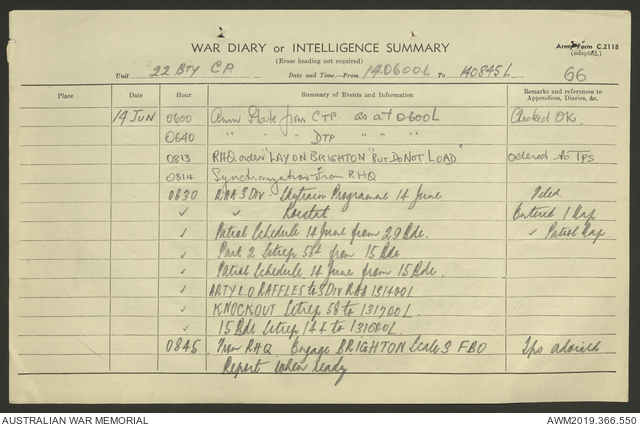 Army Form C.2118
(adapted.)
WAR DIARY or INTELLIGENCE SUMMARY
(Erase heading not required)
Unit 22 BTY C.P. Date and Time—From 140600L To 140845L 66
Place Date Hour Summary of Events and Information Remarks and references to Appendices, Diaries, &c.
14 JUN 0600 Ammn State from CTP as at 0600L Checked OK.
0640 " " " DTP " " "
0813 RHQ order "LAY ON BRIGHTON" "BUT DO NOT LOAD" ordered to TPS
0814 Synchronization from RHQ
0830 RAA 3 DIV Programme 14 June Filed
✓ ✓ Locstat Entered 1 Map
✓ Patrol Schedule 14 June from 29 Bde. ✓ Patrol Map.
✓ Part 2 Sitrep 564 from 15 Bde
✓ Patrol Schedule 14 June from 15 Bde.
✓ ARTY LO RAFFLES to 3 DIV RAA 131400L
✓ KNOCKOUT Sitrep 58 to 131700L
✓ 15 Bde Sitrep 144 to 131600L
0845 From RHQ. Engage BRIGHTON Scale 3 FBO Tps advised
Report when ready
AUSTRALIAN WAR MEMORIAL AWM2019.366.550